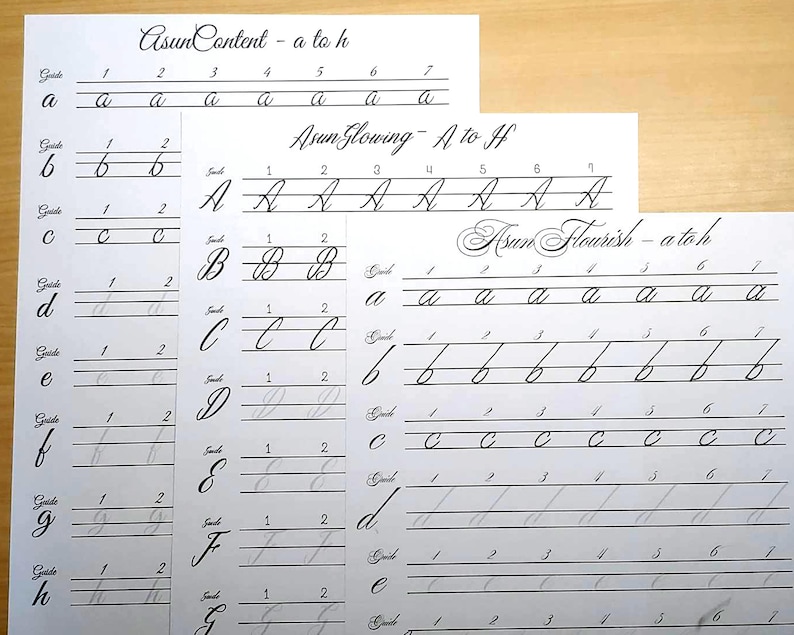 AsunContent - a to h
Guide 1 2 3 4 5 6 7
a a a a a a a a
Guide 1 2
b b b
Guide 1 2
c c c
Guide 1 2
d d d
Guide 1 2
e e e
Guide 1 2
f f f
Guide 1 2
g g g
Guide 1 2
h h h
AsunGlowing - A to H
Guide 1 2 3 4 5 6 7
A A A A A A A A
Guide 1 2
B B B
Guide 1 2
C C C
Guide 1 2
D D D
Guide 1 2
E E E
Guide 1 2
F F F
Guide 1 2
G G G
Asun Flourish - a to h
Guide 1 2 3 4 5 6 7
a a a a a a a a
Guide 1 2 3 4 5 6 7
b b b b b b b b
Guide 1 2 3 4 5 6 7
c c c c c c c c
Guide 1 2 3 4 5 6 7
d d d d d d d d
Guide 1 2 3 4 5 6 7
e e e e e e e e
Guide 1 2 3 4 5 6 7